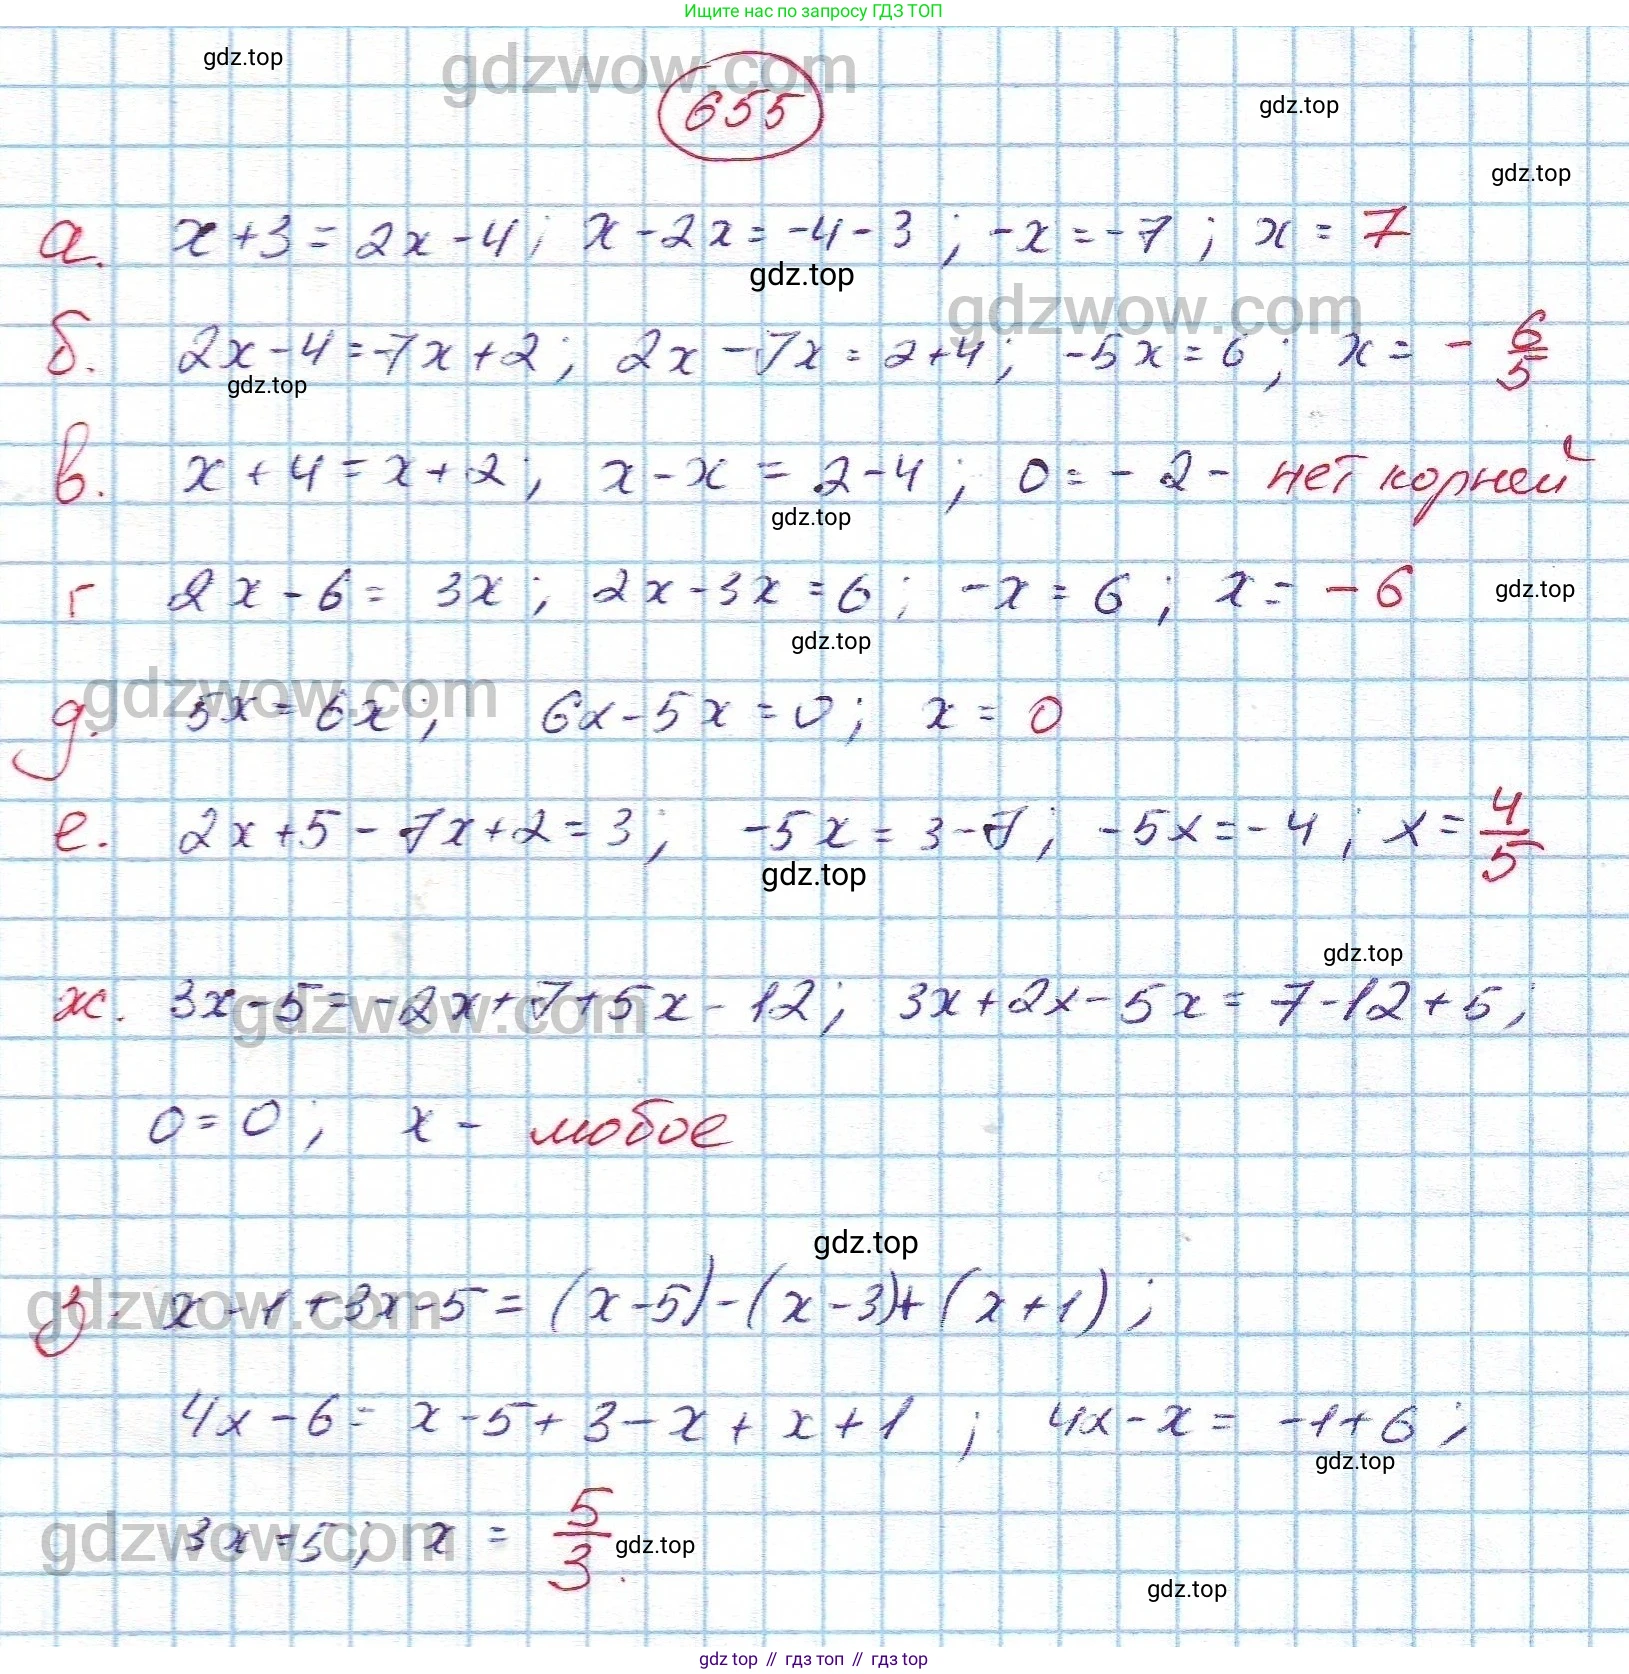 Ищите нас по запросу ГДЗ ТОП
gdz.top
gdzwow.com
655
gdz.top
gdz.top
а. x+3=2x-4; x-2x=-4-3; -x=-7; x=7
gdz.top
gdzwow.com
б. 2x-4=7x+2; 2x-7x=2+4; -5x=6; x=-6/5
gdz.top
в. x+4=x+2; x-x=2-4; 0=-2- нет корней
gdz.top
г 2x-6=3x; 2x-3x=6; -x=6; x=-6
gdz.top
gdz.top
gdzwow.com
д. 5x=6x; 6x-5x=0; x=0
е. 2x+5-7x+2=3; -5x=3-7; -5x=-4; x=4/5
gdz.top
gdz.top
ж. 3x-5=-2x+7+5x-12; 3x+2x-5x=7-12+5;
gdzwow.com
0=0; x- любое
gdz.top
gdzwow.com
з. x-1+3x-5=(x-5)-(x-3)+(x+1);
4x-6=x-5+3-x+x+1; 4x-x=-1+6;
gdz.top
gdzwow.com
3x=5; x=5/3.
gdz.top
gdz.top
gdz top // гдз топ // гдз top